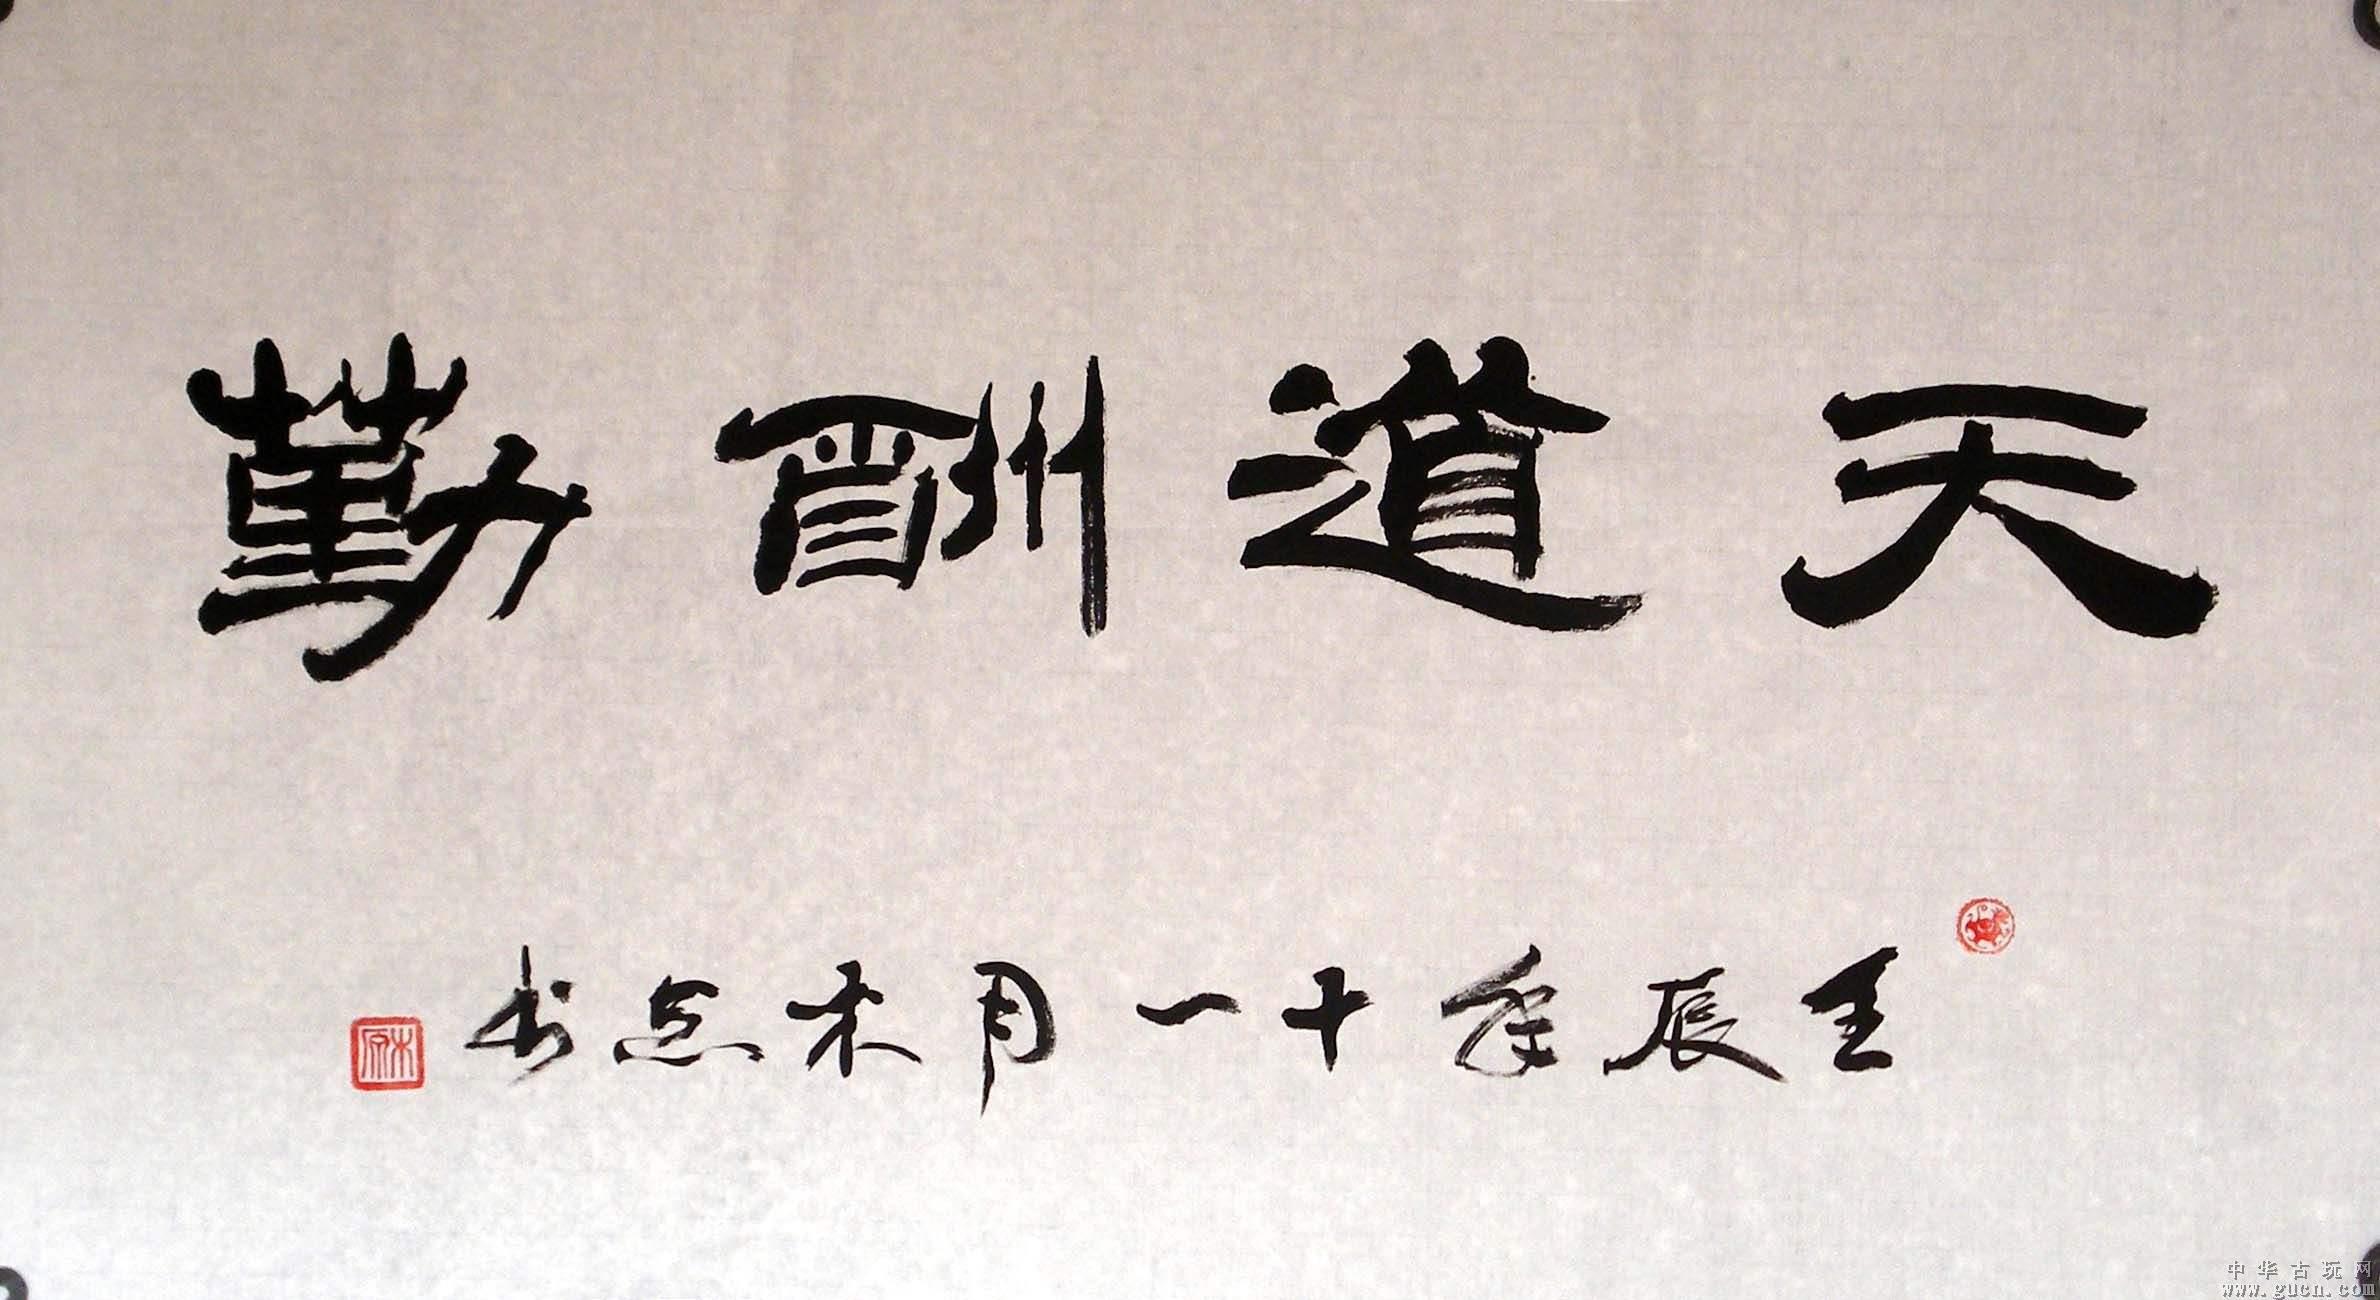 天道酬勤
壬辰年十一月木原书
木原
中华古玩网
www.gucn.com